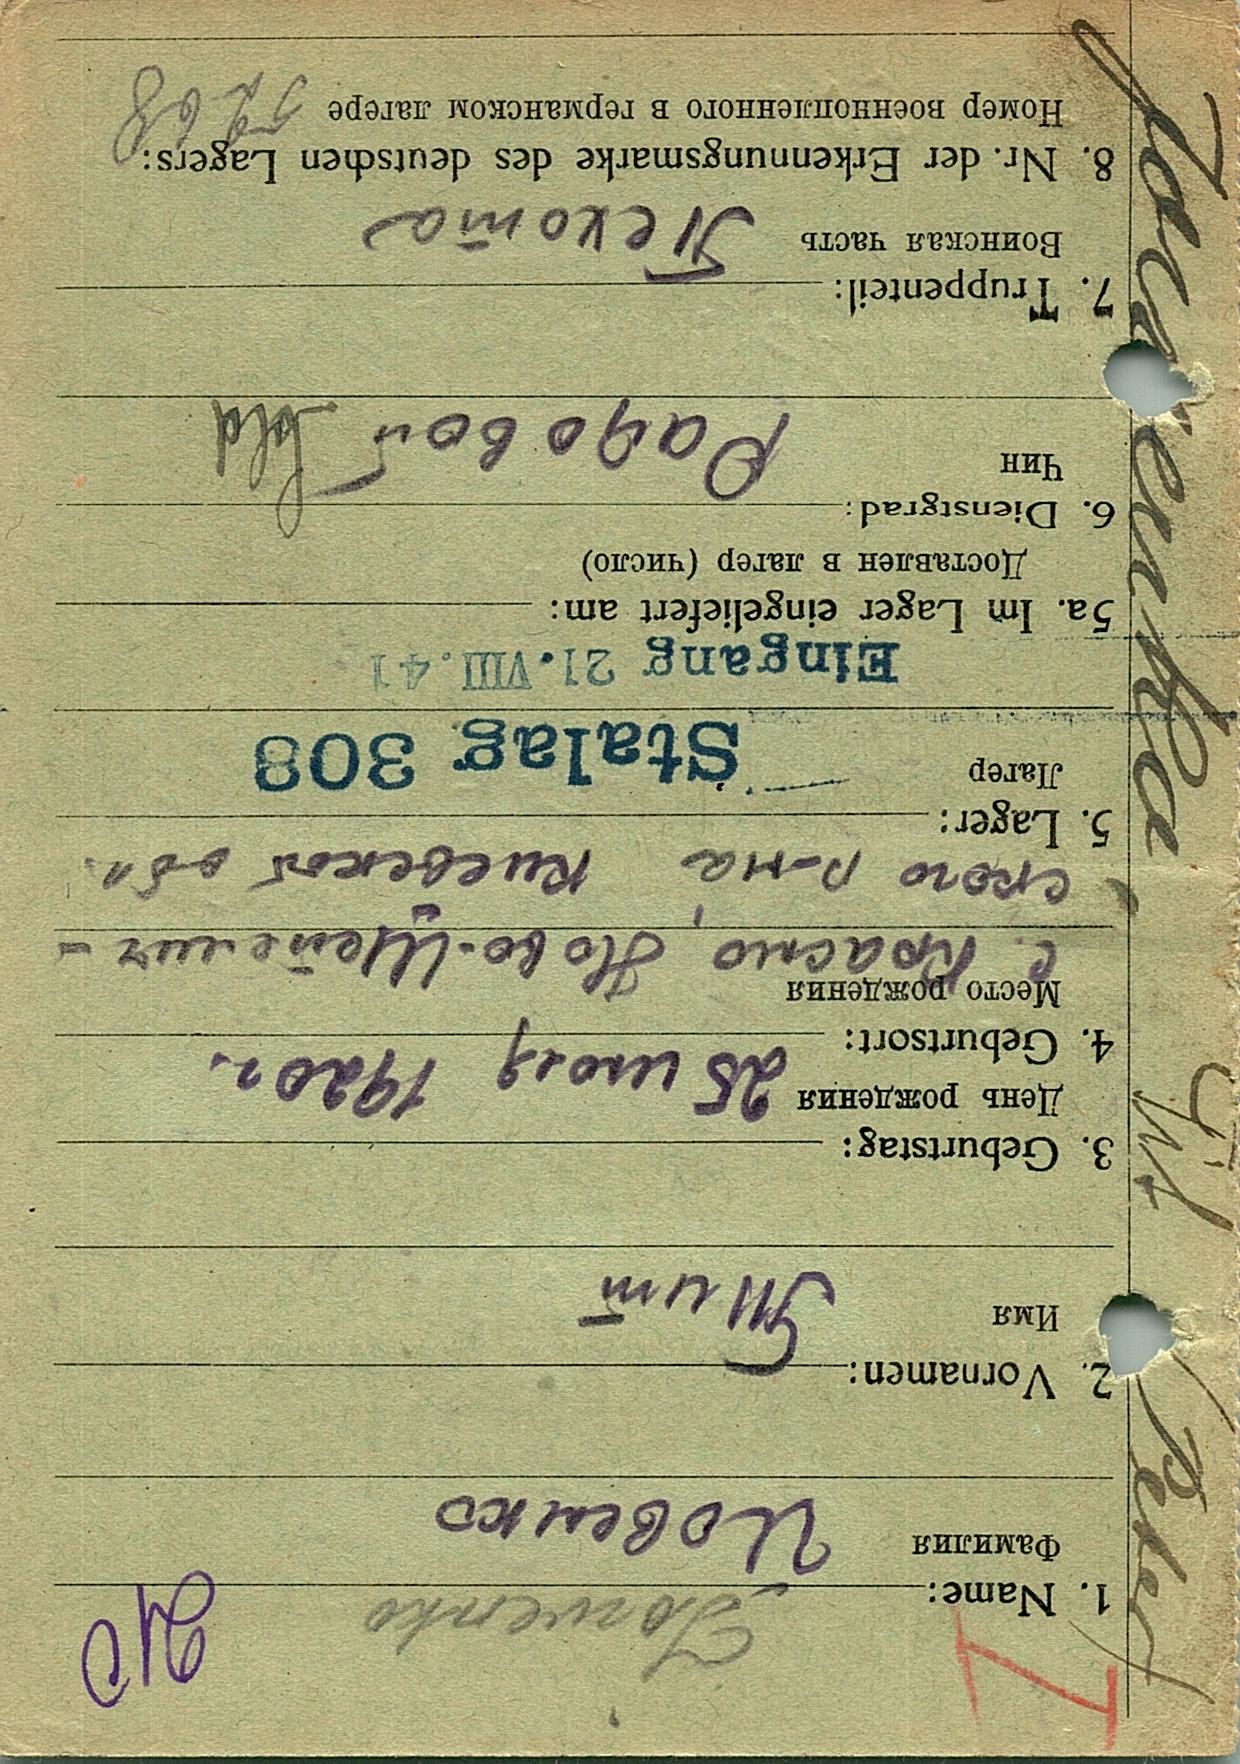 I
1. Name:
Фамилия
Иовенко
2. Vornamen:
Имя
Тит
3. Geburtstag:
День рождения
25 июля 1920г.
4. Geburtsort:
Место рождения
с. Красно, Ново-Шепелич-
ского р-на Киевской обл.
5. Lager:
Лагер
Stalag 308
Eingang 21.VIII.41
5a. Im Lager eingeliefert am:
Доставлен в лагер (число)
6. Dienstgrad:
Чин
Рядовой Sold
7. Truppenteil:
Воинская часть
Пехота
8. Nr. der Erkennungsmarke des deutschen Lagers:
Номер военнопленного в германском лагере